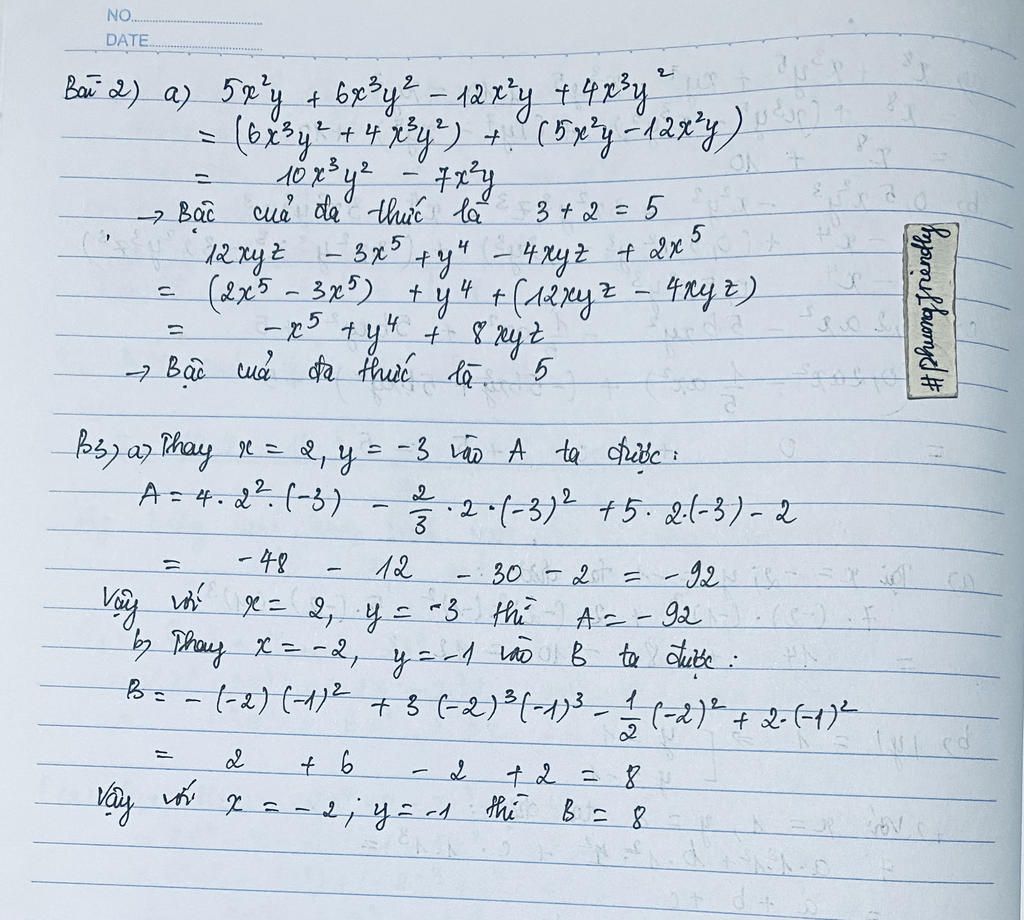 NO.
DATE
Bài 2) a) 5x²y + 6x³y² - 12x²y + 4x³y²
= (6x³y² + 4x³y²) + (5x²y - 12x²y)
= 10x³y² - 7x²y
→ Bậc cuả đa thức là 3 + 2 = 5
12xyz - 3x⁵ + y⁴ - 4xyz + 2x⁵
= (2x⁵ - 3x⁵) + y⁴ + (12xyz - 4xyz)
= -x⁵ + y⁴ + 8xyz
→ Bậc cuả đa thức là 5
B3) a) Thay x = 2, y = -3 vào A ta được:
A = 4 . 2² . (-3) - 2/3 . 2 . (-3)² + 5 . 2.(-3) - 2
= -48 - 12 - 30 - 2 = -92
Vậy với x = 2, y = -3 thì A = -92
b) Thay x = -2, y = -1 vào B ta được:
B = - (-2) (-1)² + 3 (-2)³ (-1)³ - 1/2 (-2)² + 2.(-1)²
= 2 + 6 - 2 + 2 = 8
Vậy với x = -2; y = -1 thì B = 8